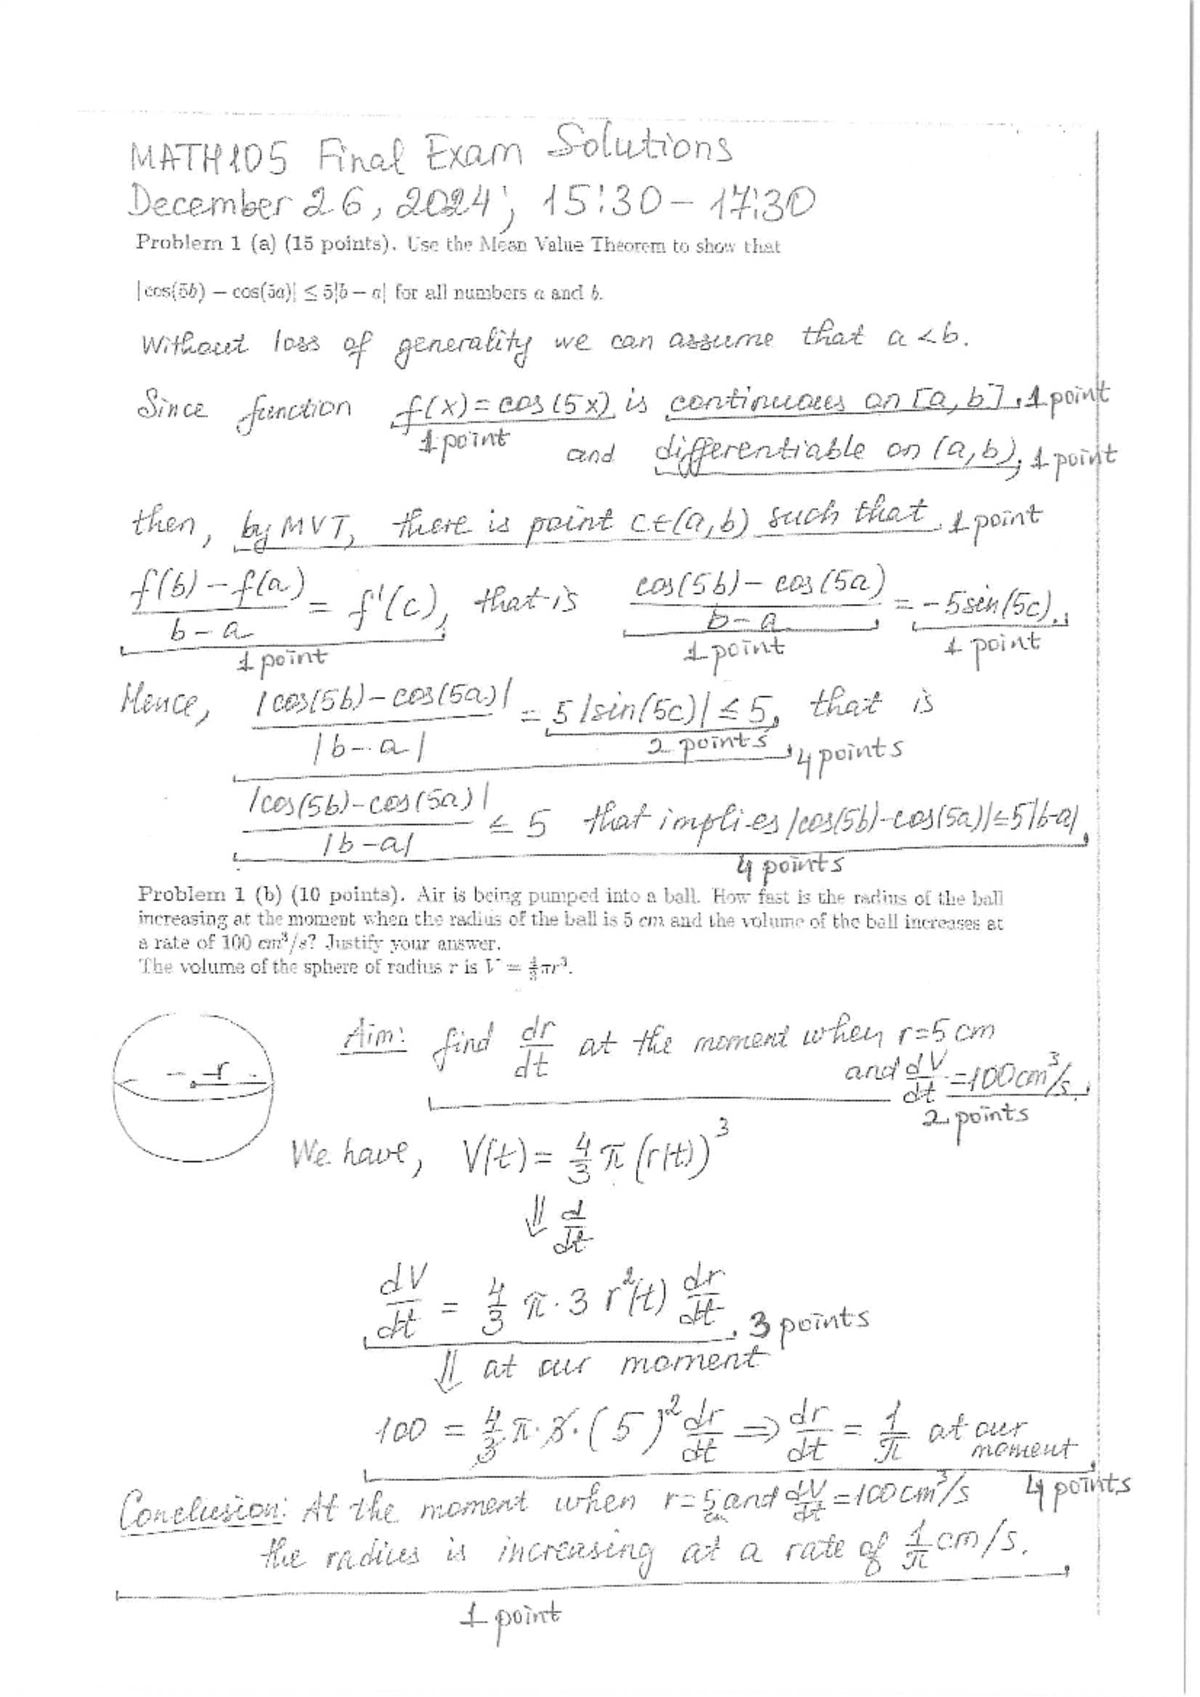 MATH105 Final Exam Solutions
December 26, 2024; 15:30 – 17:30
Problem 1 (a) (15 points). Use the Mean Value Theorem to show that
|cos(5b) − cos(5a)| ≤ 5|b − a| for all numbers a and b.
Without loss of generality we can assume that a < b.
Since function f(x) = cos(5x) is continuous on [a, b], 1 point
1 point and differentiable on (a, b), 1 point
then, by MVT, there is point c ∈ (a, b) such that 1 point
(f(b) − f(a))/(b − a) = f'(c), that is (cos(5b) − cos(5a))/(b − a) = −5sin(5c).
1 point 1 point 1 point
Hence, |cos(5b) − cos(5a)|/|b − a| = 5|sin(5c)| ≤ 5, that is
2 points, 4 points
|cos(5b) − cos(5a)|/|b − a| ≤ 5 that implies |cos(5b) − cos(5a)| ≤ 5|b − a|,
4 points
Problem 1 (b) (10 points). Air is being pumped into a ball. How fast is the radius of the ball
increasing at the moment when the radius of the ball is 5 cm and the volume of the ball increases at
a rate of 100 cm³/s? Justify your answer.
The volume of the sphere of radius r is V = 4/3 πr³.
r
Aim: find dr/dt at the moment when r = 5 cm
and dV/dt = 100 cm³/s.
2 points
We have, V(t) = 4/3 π (r(t))³
⇓ d/dt
dV/dt = 4/3 π · 3 r²(t) dr/dt, 3 points
⇓ at our moment
100 = 4/3 π · 3 · (5)² dr/dt ⇒ dr/dt = 1/π at our
moment
4 points
Conclusion: At the moment when r = 5 cm and dV/dt = 100 cm³/s
the radius is increasing at a rate of 1/π cm/s.
1 point